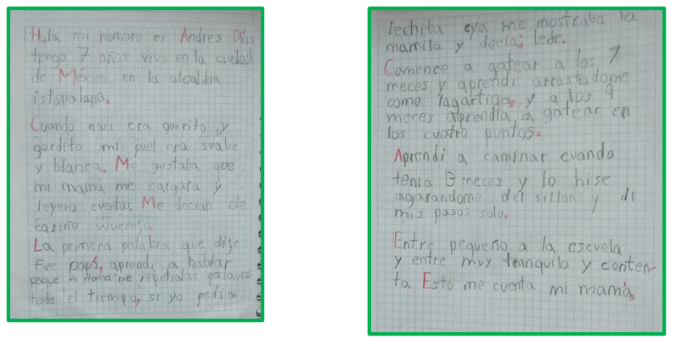 Hola mi nombre es Andres Días
tengo 7 años vivo en la ciudad
de México en la alcaldia
istapalapa.
Cuando naci era guerito y
gordito mi piel era suabe
y blanca. Me gustaba que
mi mamá me cargara y
leyera cuentos. Me decian de
cariño
La primera palabra que dije
fue papá, aprendi a hablar
peque mi mama me repetia las palabras
todo el tiempo, si yo pedia
lechita eya me mostraba la
mamila y docia: lede.
Comence a gatear a los 7
meces y aprendi arrastadome
como lagartiga, y a los 9
meces aprendia, a gatear en
los cuatro puntos.
Aprendi a caminar cuando
tenia 13 meces y lo hise
agarandome del sillon y di
mis pasos solo.
Entre pequeño a la escuela
y entre muy tranquilo y conten-
ta Esto me cuenta mi mamá.